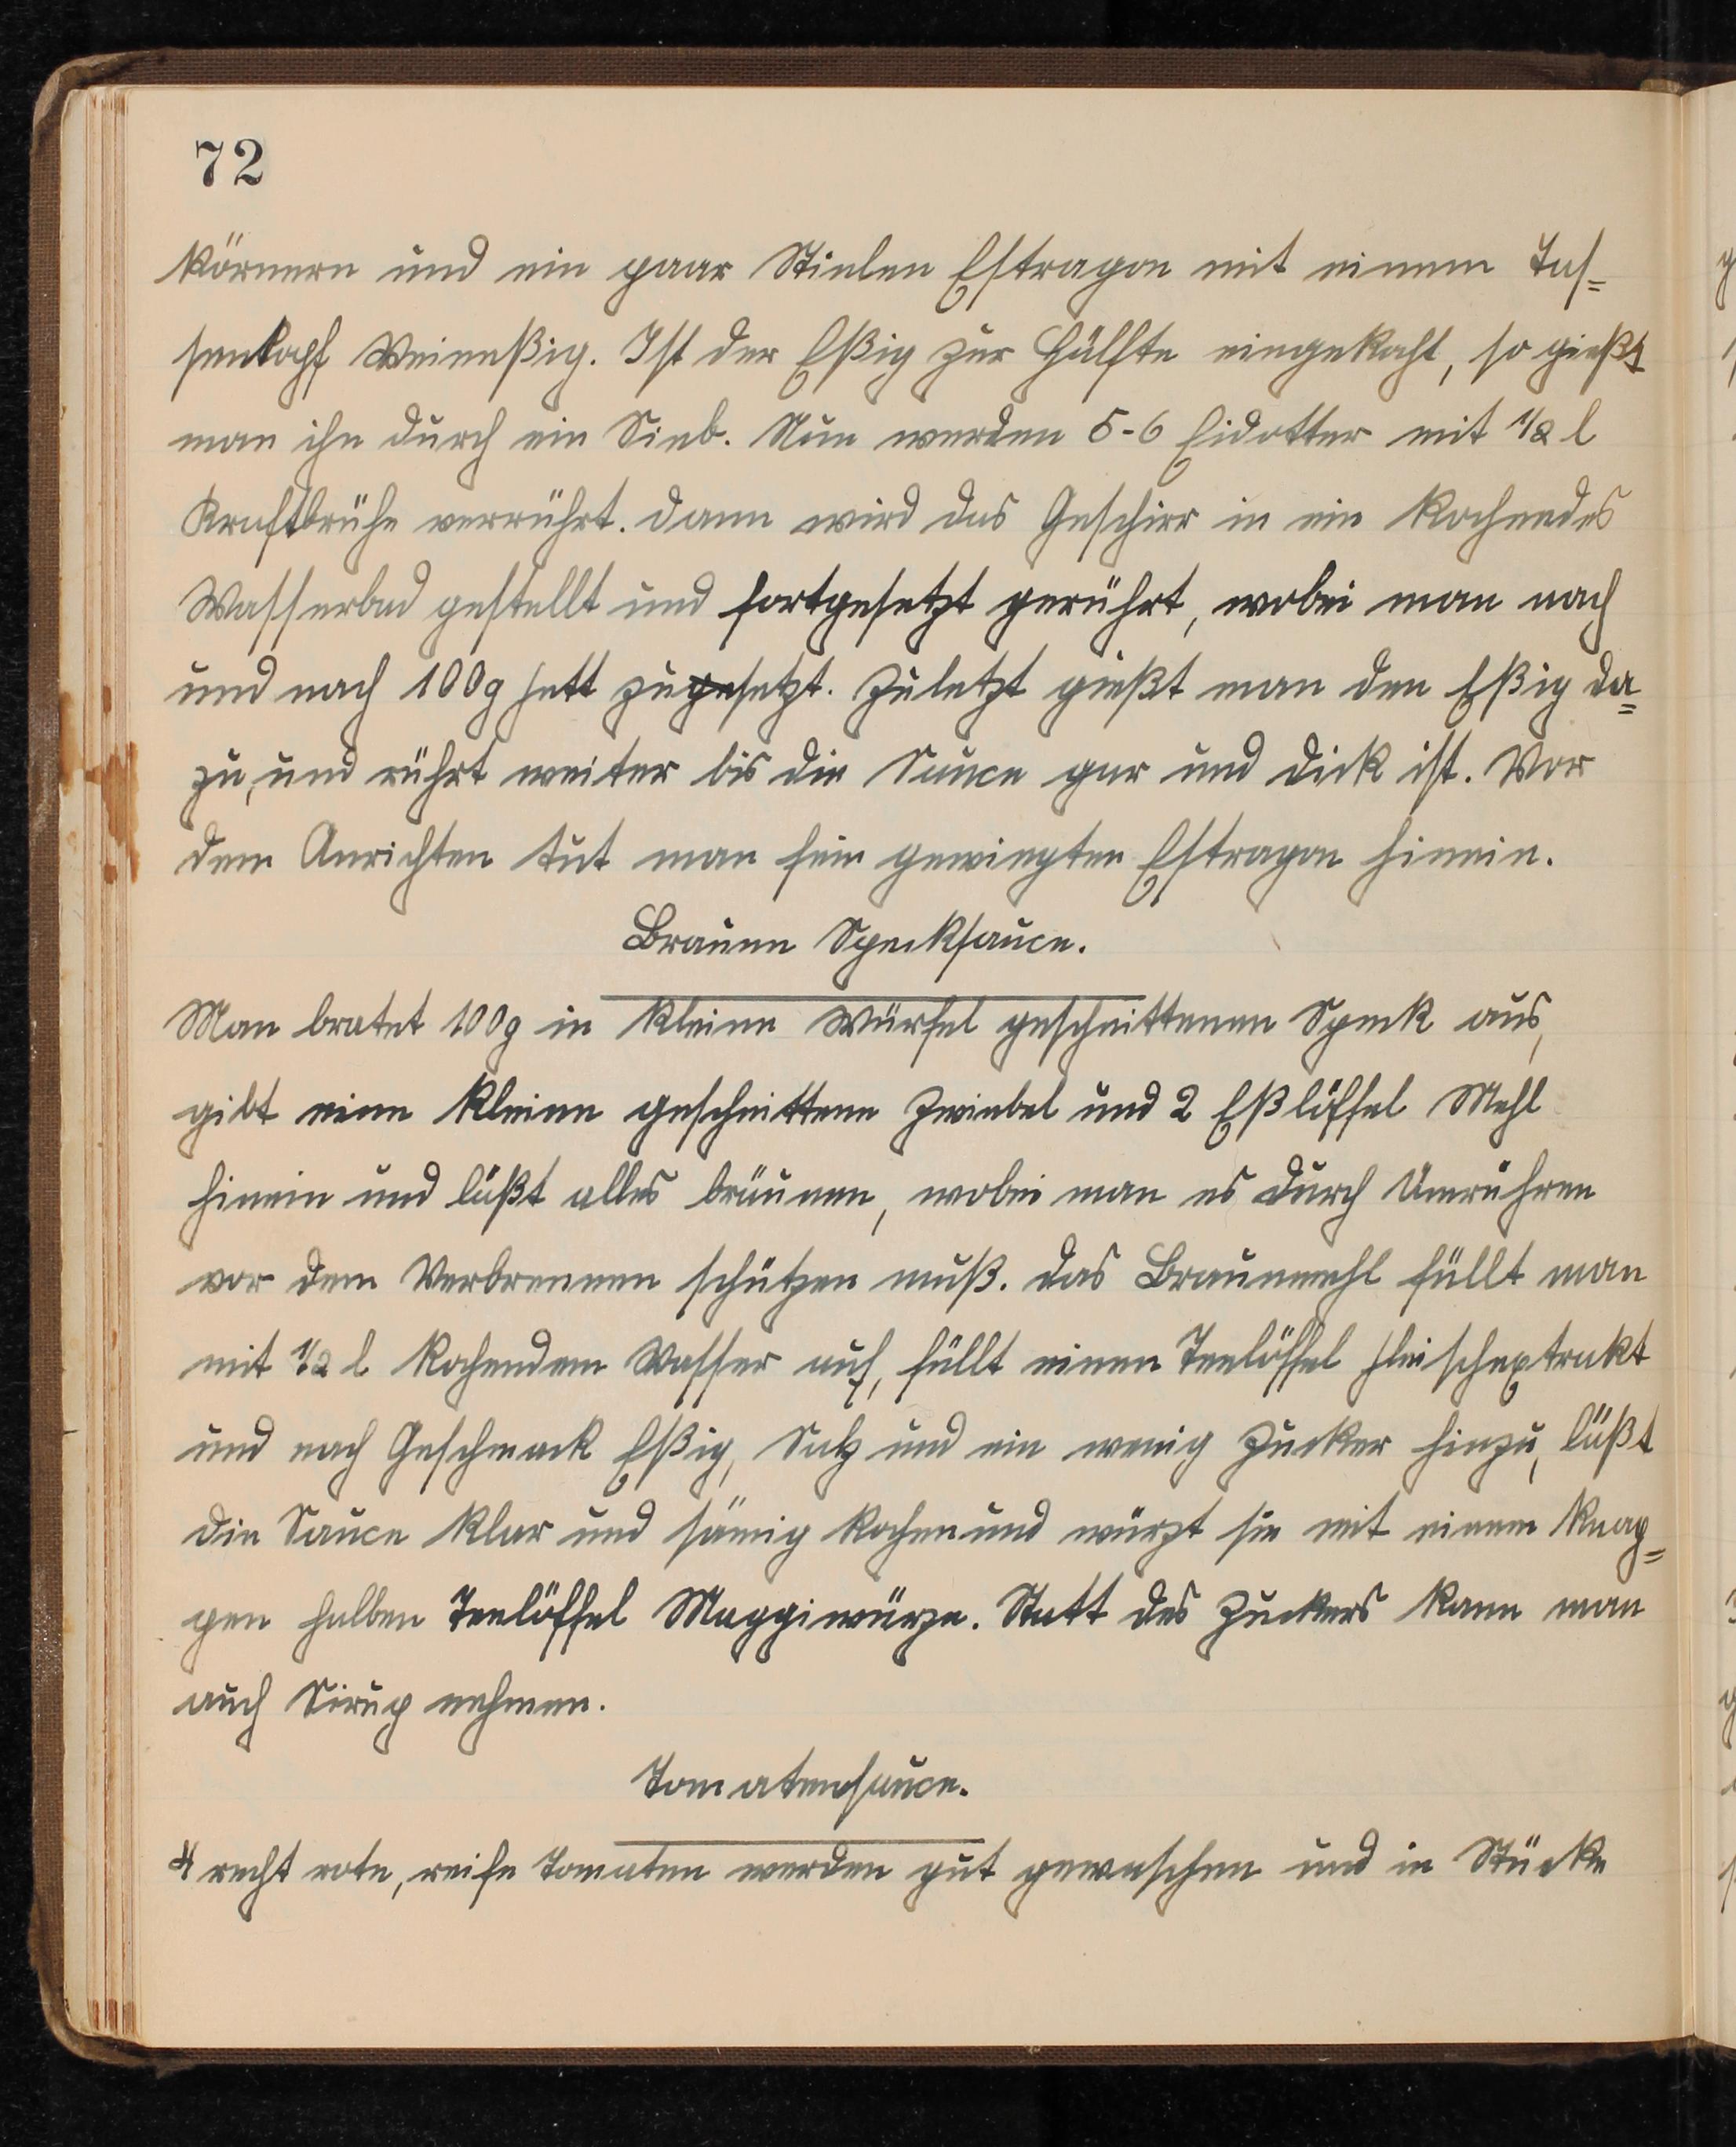 72
körnern und ein paar Stielen Estragon mit einem Tas=
senkopf Weineßig. Ist der Eßig zur Hälfte eingekocht, so gießt
man ihn durch ein Sieb. Nun werden 5-6 Eidotter mit 1/8 l
Kraftbrühe verrührt. Dann wird das Geschirr in ein kochendes
Wasserbad gestellt und fortgesetzt gerührt, wobei man nach
und nach 100g Fett zugesetzt. Zuletzt gießt man den Eßig da=
zu, und rührt weiter bis die Sauce gar und dick ist. Vor
dem Anrichten tut man fein gewiegten Estragon hinein.
Braune Specksauce.
Man bratet 100g in kleine Würfel geschnittenen Speck aus,
gibt eine kleine geschnittene Zwiebel und 2 Eßlöffel Mehl
hinein und läßt alles bräunen, wobei man es durch Umrühren
vor dem Verbrennen schützen muß. Das Braunmehl füllt man
mit 1/2 l kochendem Wasser auf, füllt einen Teelöffel Fleischextrakt
und nach Geschmack Eßig, Salz und ein wenig Zucker hinzu, läßt
die Sauce klar und sämig kochen und würzt sie mit einem knap=
pen halben Teelöffel Maggiwürze. Statt des Zuckers kann man
auch Sirup nehmen.
Tomatensauce.
4 recht rote, reife Tomaten werden gut gewaschen und in Stücke